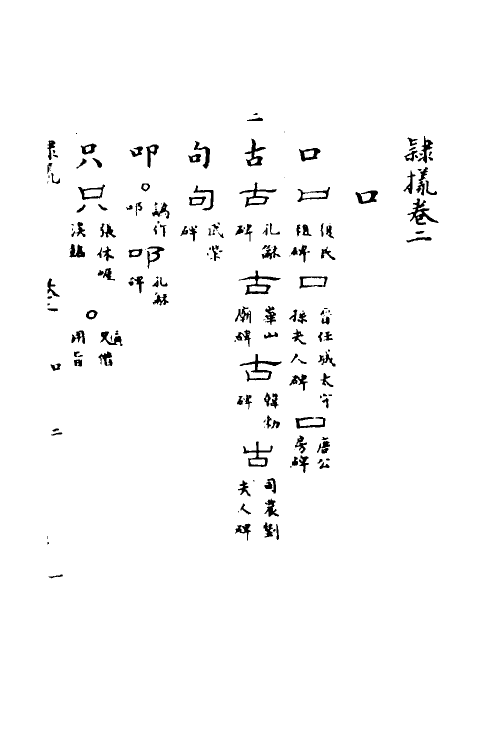 隸㨾卷二
口
口 口 侯氏祖碑 口 晉任城太守孫夫人碑 口 唐公房碑
二
古 古 孔龢碑 古 華山廟碑 古 韓勑碑 古 司農劉夫人碑
句 句 武榮碑
叩 ○ 叩 譌作 叩 孔龢碑
只 只 張休崖涘銘 ○
口 二
一